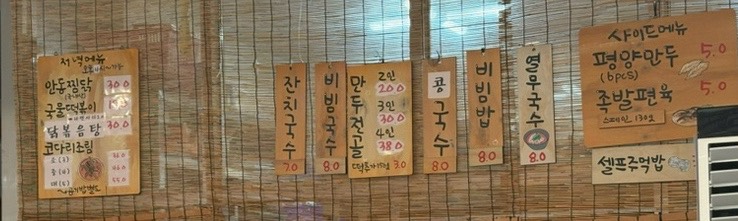 저녁메뉴
안동찜닭 30.0
국물떡볶이
닭볶음탕 30.0
코다리조림
소(2) 36.0
중(3) 46.0
대(5) 55.0
잔치국수
7.0
비빔국수
8.0
만두전골
2인
20.0
3인
30.0
4인
38.0
3.0
콩국수
8.0
비빔밥
8.0
열무국수
8.0
사이드메뉴
평양만두 5.0
(6pcs)
족발편육 5.0
스페인, 130g
셀프주먹밥